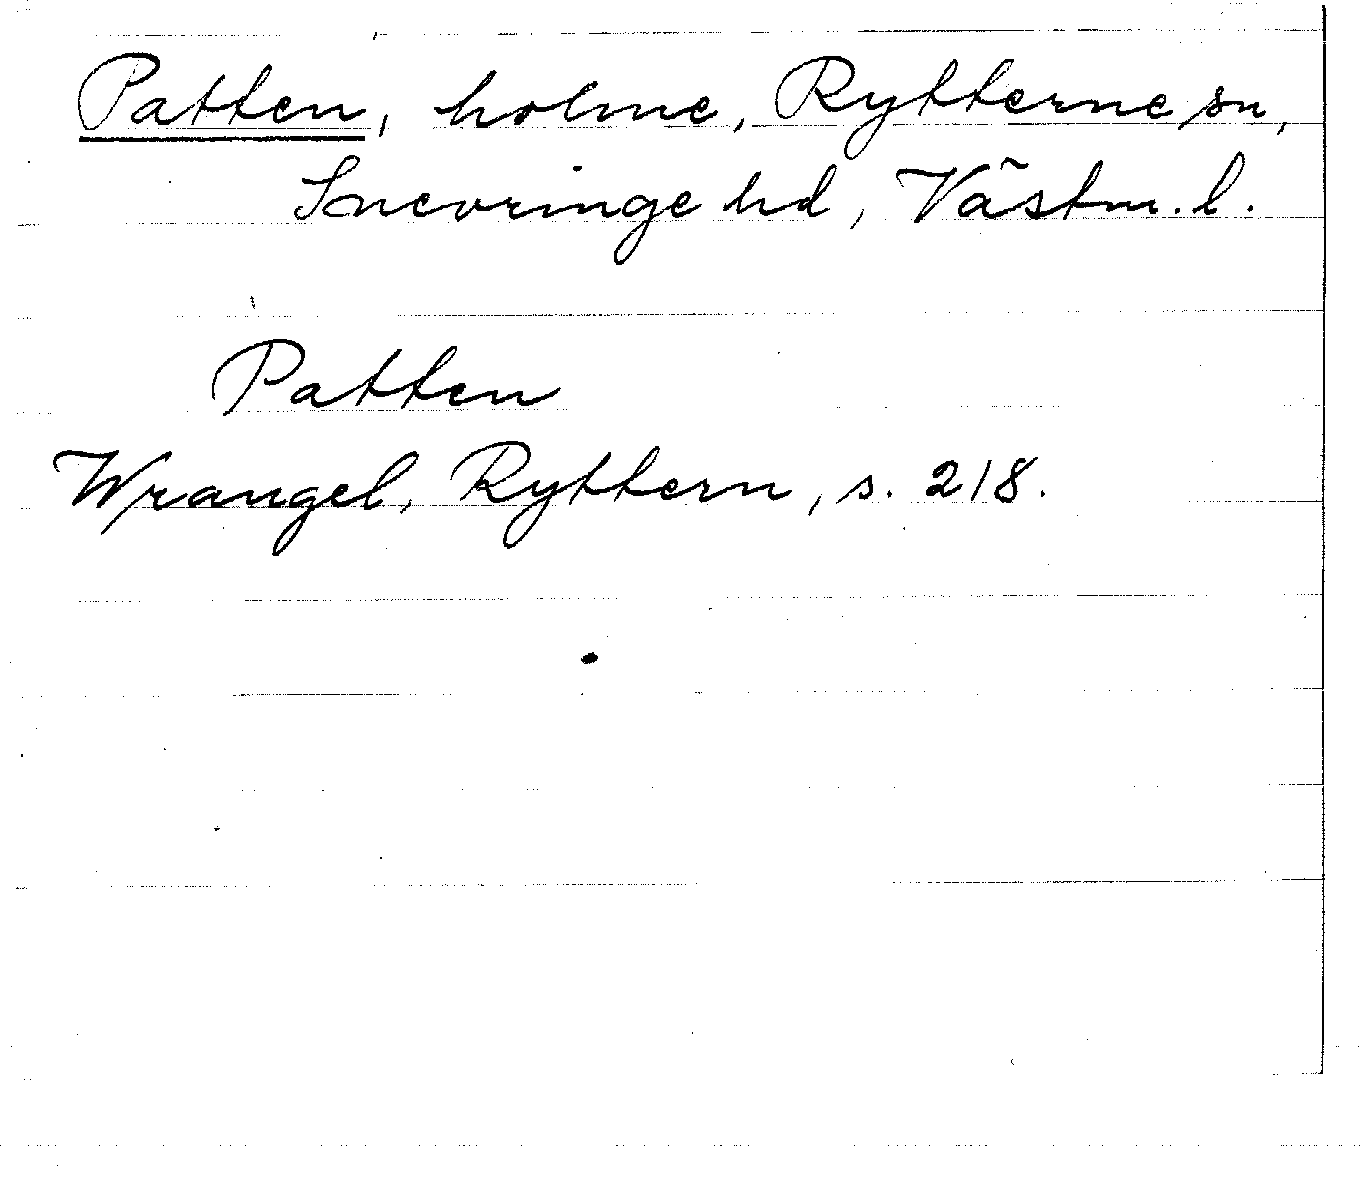 Patten, holme, Rytterne sn,
Snevringe hd, Västm. l.
Patten
Wrangel, Ryttern, s. 218.